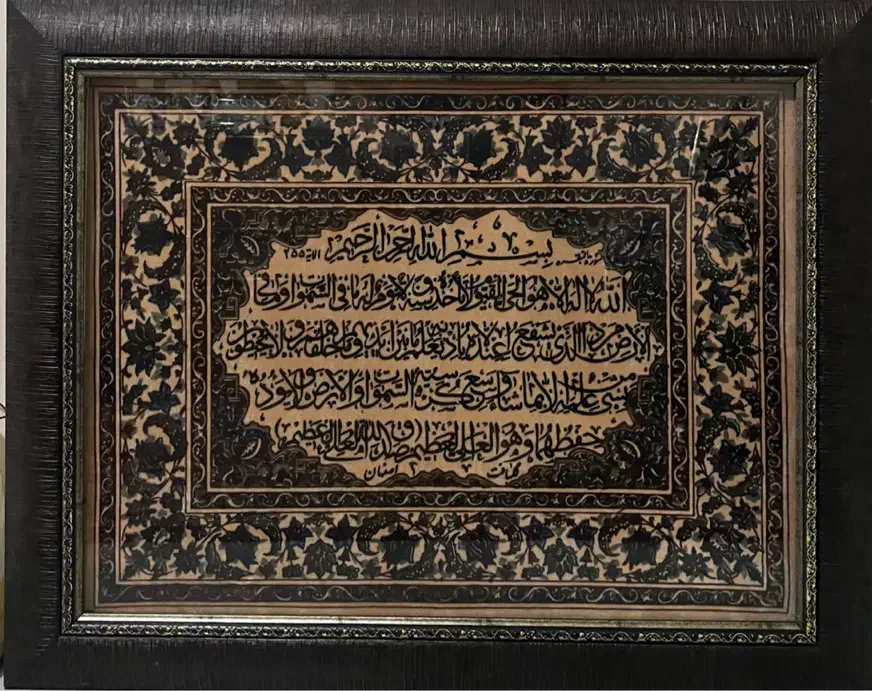 بسم الله الرحمن الرحيم الاية ٢٥٥
الله لا اله الا هو الحي القيوم لا تأخذه سنة ولا نوم له ما في السموات وما في
الارض من ذا الذي يشفع عنده الا باذنه يعلم ما بين ايديهم وما خلفهم ولا يحيطون
بشيء من علمه الا بما شاء وسع كرسيه السموات والارض ولا يؤده
حفظهما وهو العلي العظيم (صدق الله العلي العظيم)